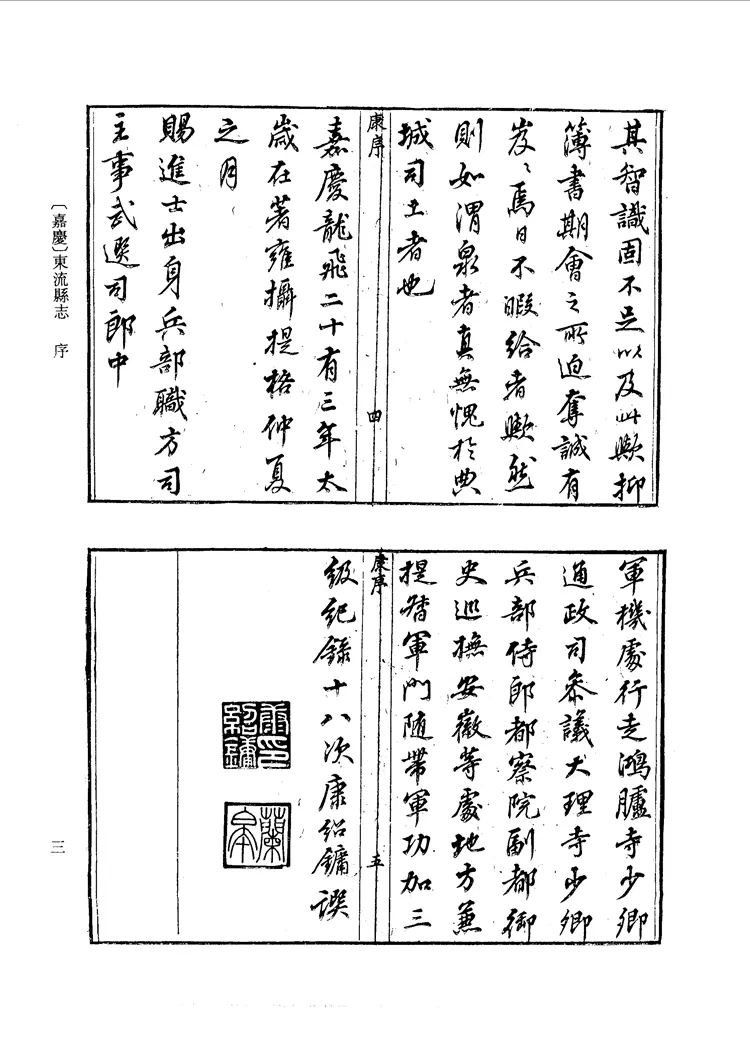 其智識固不足以及此歟抑
簿書期會之所迫奪誠有
岌〻焉日不暇給者歟然
則如渭泉者真無愧於典
城司土者也
康序
四
嘉慶龍飛二十有三年太
歲在著雍攝提格仲夏
之月
賜進士出身兵部職方司
主事武選司郎中
軍機處行走鴻臚寺少卿
通政司叅議大理寺少卿
兵部侍郎都察院副都御
史巡撫安徽等處地方兼
提督軍門随帶軍功加三
康序
五
級紀錄十八次康紹鏞譔
康印紹鏞
蘭皋
〔嘉慶〕東流縣志 序
三